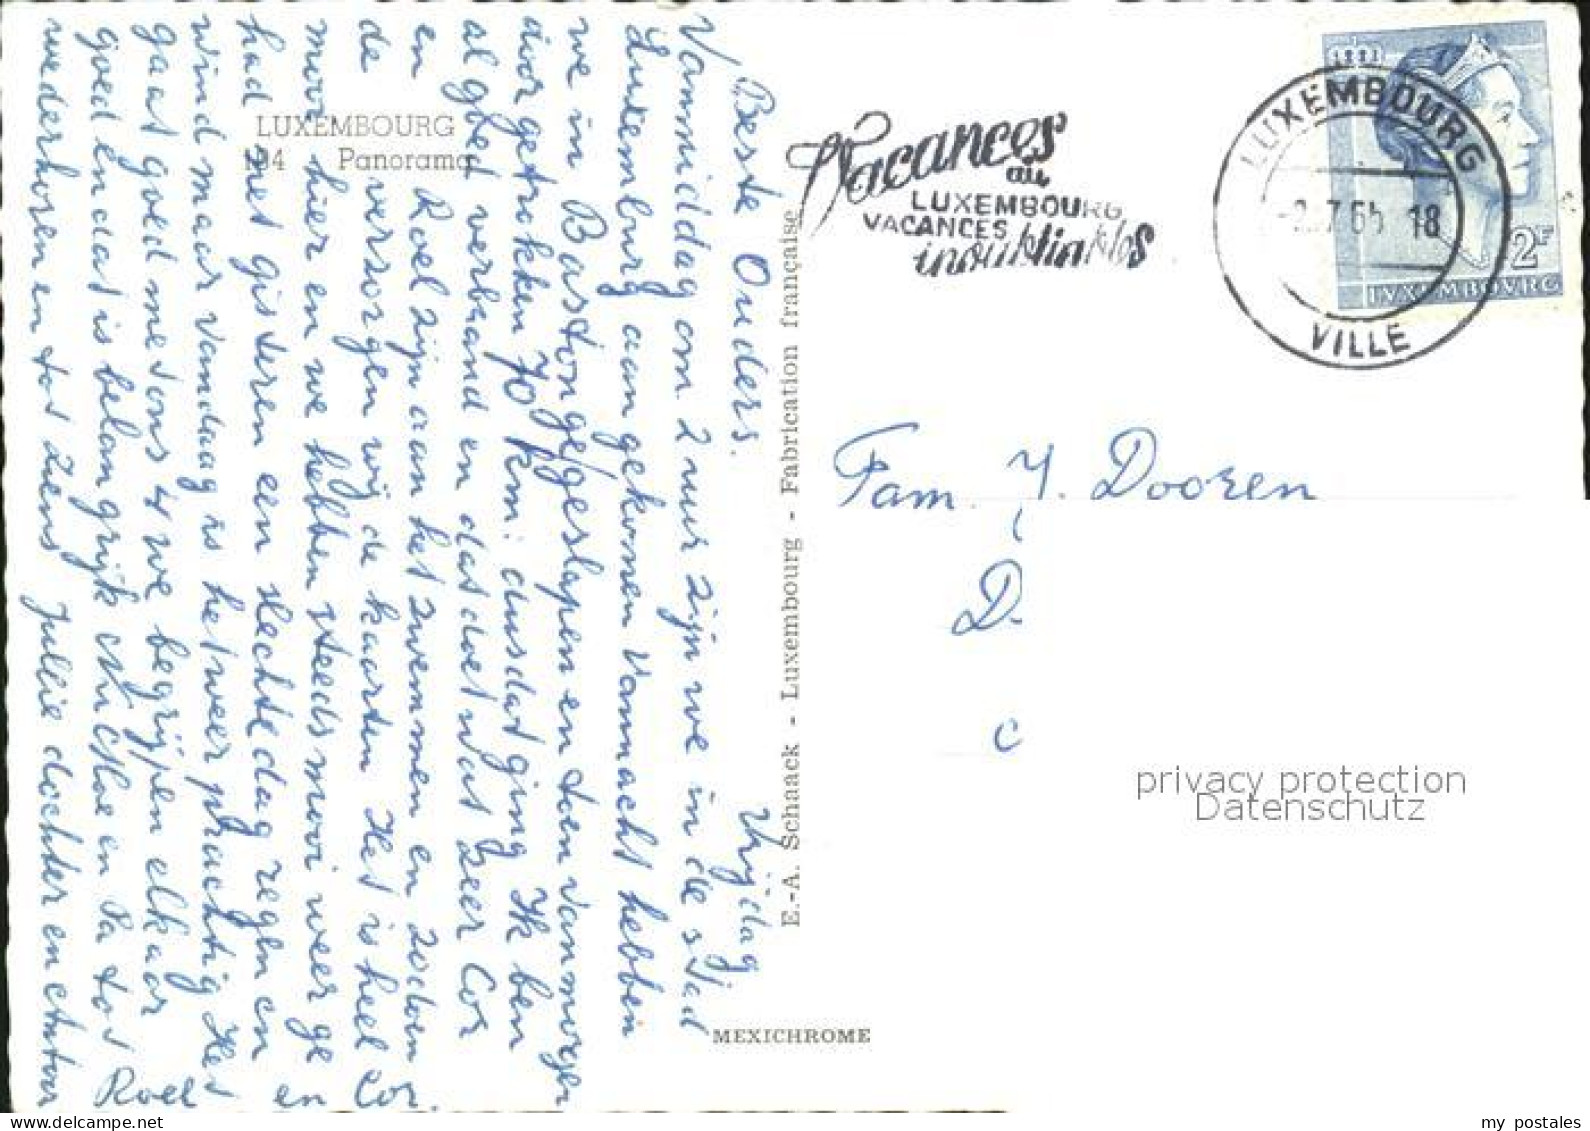 LUXEMBOURG
194 Panorama
Vrijdag
Beste Ouders.
Vanmiddag om 2 uur zijn we in de stad
Luxemburg aangekomen Vannacht hebben
we in Bastonge geslapen en toen vanmorgen
doorgetrokken 70 km. dus dat ging Ik ben
al goed verbrand en dat doet wat zeer Cor
en Roel zijn aan het zwemmen en zodoen
de verzorgen wij de kaarten Het is heel
mooi hier en we hebben steeds mooi weer ge
had met gisteren een slechte dag regen en
wind maar vandaag is het weer prachtig Het
gaat goed met ons 4 we begrijpen elkaar
goed en dat is belangrijk en Pa tot
wederhoren en tot ziens Jullie dochter en
Cor
en
Roel
E.-A. Schaack - Luxembourg - Fabrication française
MEXICHROME
Vacances
au
LUXEMBOURG
VACANCES
inoubliables
LUXEMBOURG
VILLE
-2.-7.65 18
1882
2F
LVXEMBOVRG
Fam. J. Dooren
D.
C
privacy protection
Datenschutz
my postales